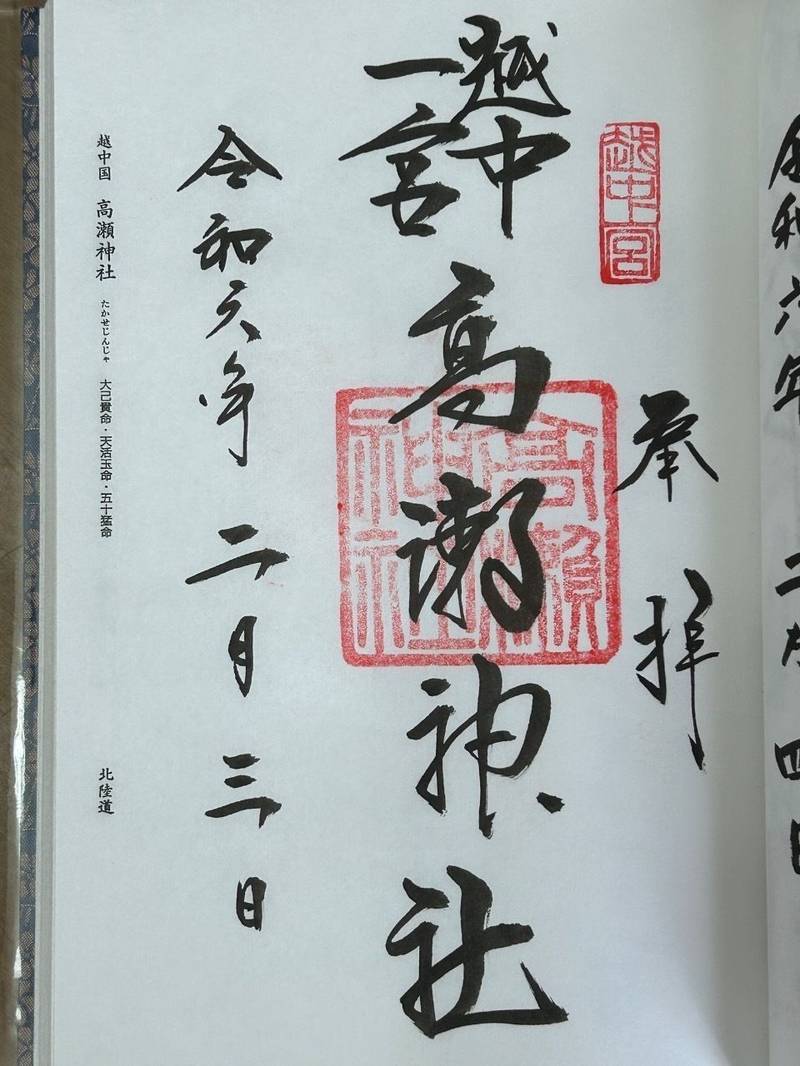 令和六年 二月 四日
奉拝
越中一宮
越中
一宮
高瀬神社
高瀬神社
令和六年 二月三日
越中国 高瀬神社 たかせじんじゃ 大己貴命・天活玉命・五十猛命 北陸道